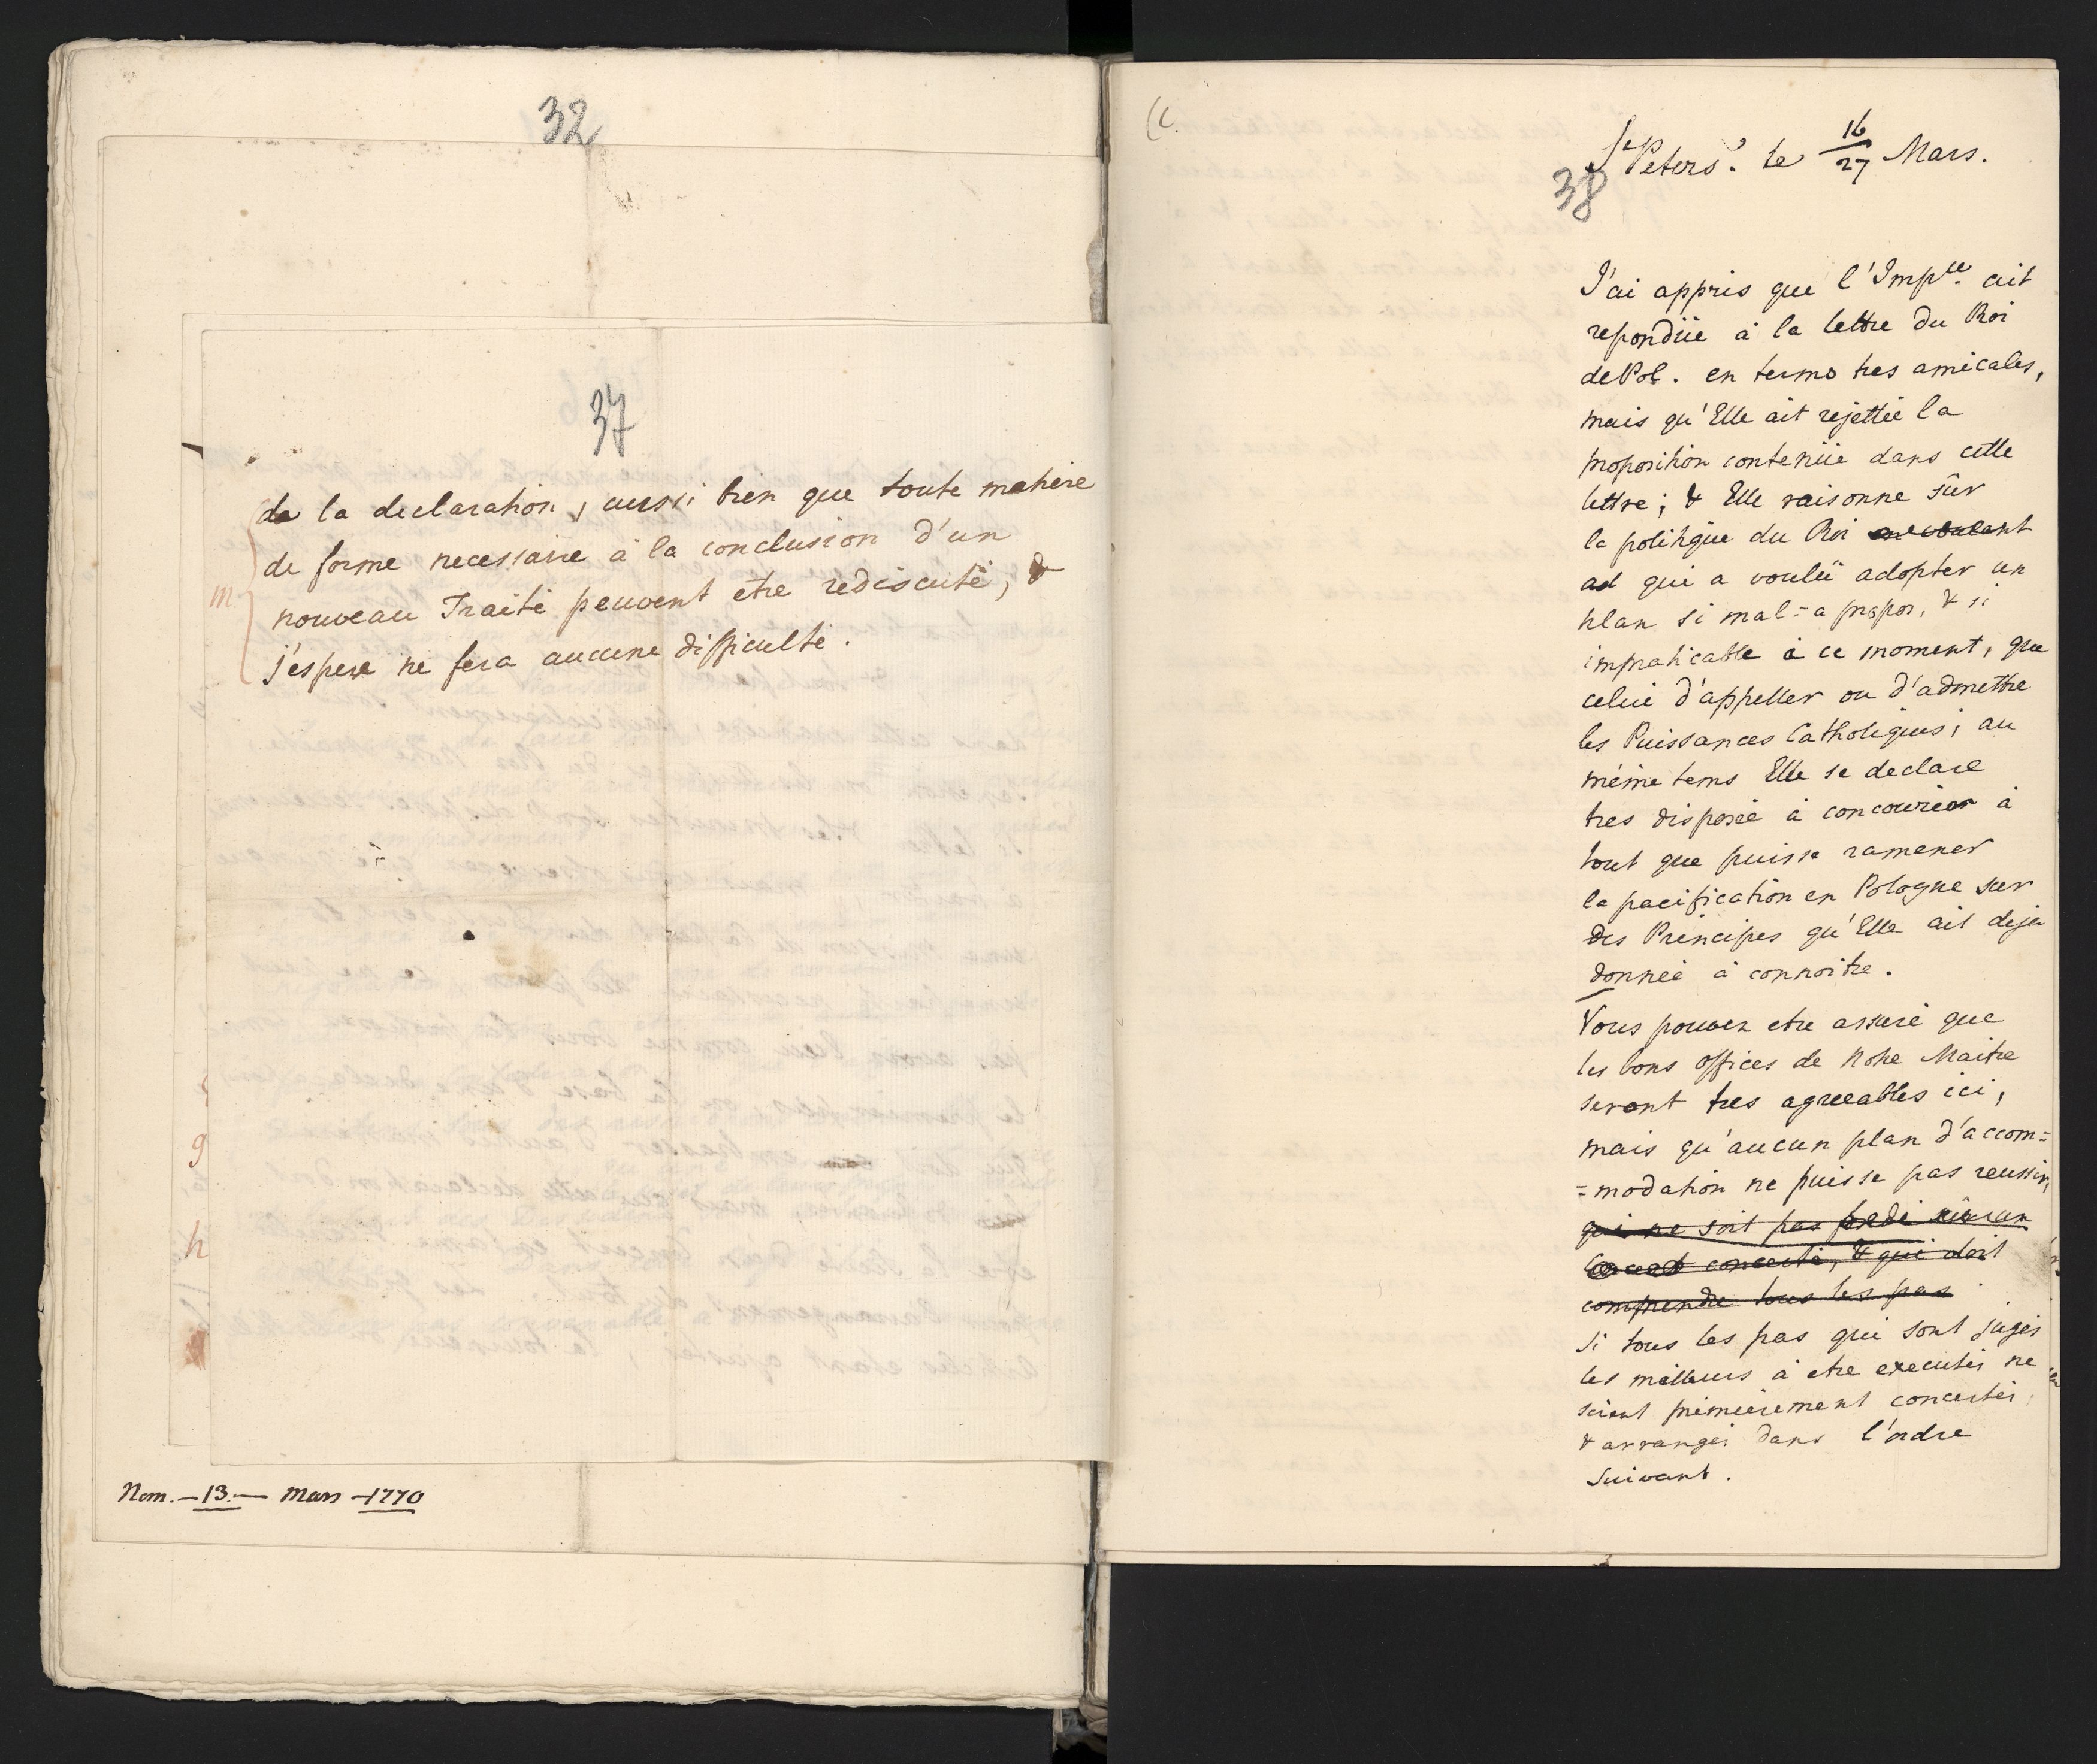 32
37
de la declaration, aussi bien que toute matiere
de forme necessaire à la conclusion d'un
m.
nouveau Traité peuvent etre rediscuté, &
j'espere ne fera aucune difficulté.
g
h
Nom. - 13. - Mars - 1770
(C.
St Peters. le 16/27 Mars.
38
J'ai appris que l'Impce. ait
repondüe à la lettre du Roi
de Pol. en terms tres amicales,
mais qu'Elle ait rejettée la
proposition contenüe dans cette
lettre; & Elle raisonne sûr
la politique du Roi en voulant
ad qui a voulü adopter un
plan si mal=a propos, & si
impraticable à ce moment, que
celui d'appeller ou d'admettre
les Puissances Catholiques; au
même tems Elle se declare
tres disposée à concourier à
tout que puisse ramener
la pacification en Pologne sur
des Principes qu'Elle ait deja
donnée à connoitre.
Vous pouvez etre assuré que
les bons offices de Notre Maitre
seront tres agreeables ici,
mais qu'aucun plan d'accom=
=modation ne puisse pas reussir,
qui ne soit pas fondé sûr un
Concert concerté, & qui doit
comprendre tous les pas
si tous les pas qui sont jugés
les meilleurs à etre executés ne
soient premierement concertés
& arrangés dans l'ordre
suivant.